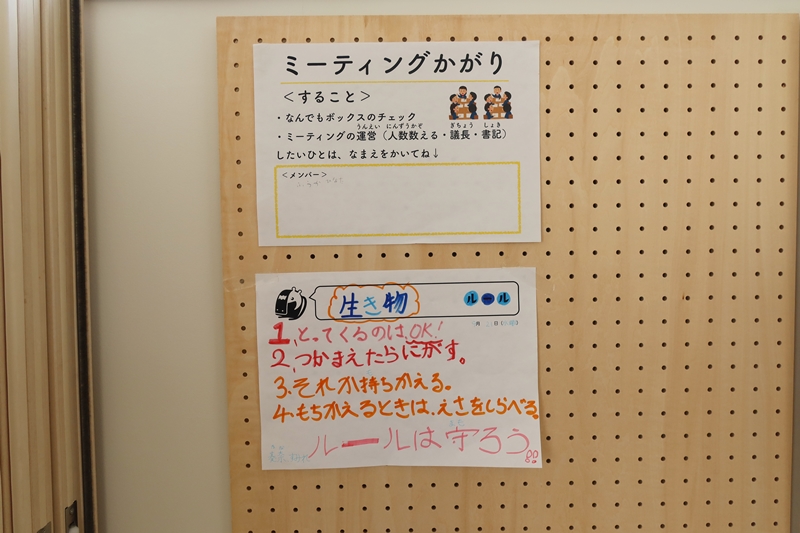 ミーティングかがり
＜すること＞
・なんでもボックスのチェック
うんえい にんずうかぞ ぎちょう しょき
・ミーティングの運営（人数数える・議長・書記）
したいひとは、なまえをかいてね↓
＜メンバー＞
生き物 ルール
月 日
1、とってくるのは、OK!
2、つかまえたらにがす。
3、それか持ちかえる。
4、もちかえるときは、えさをしらべる。
ルールは守ろう!!